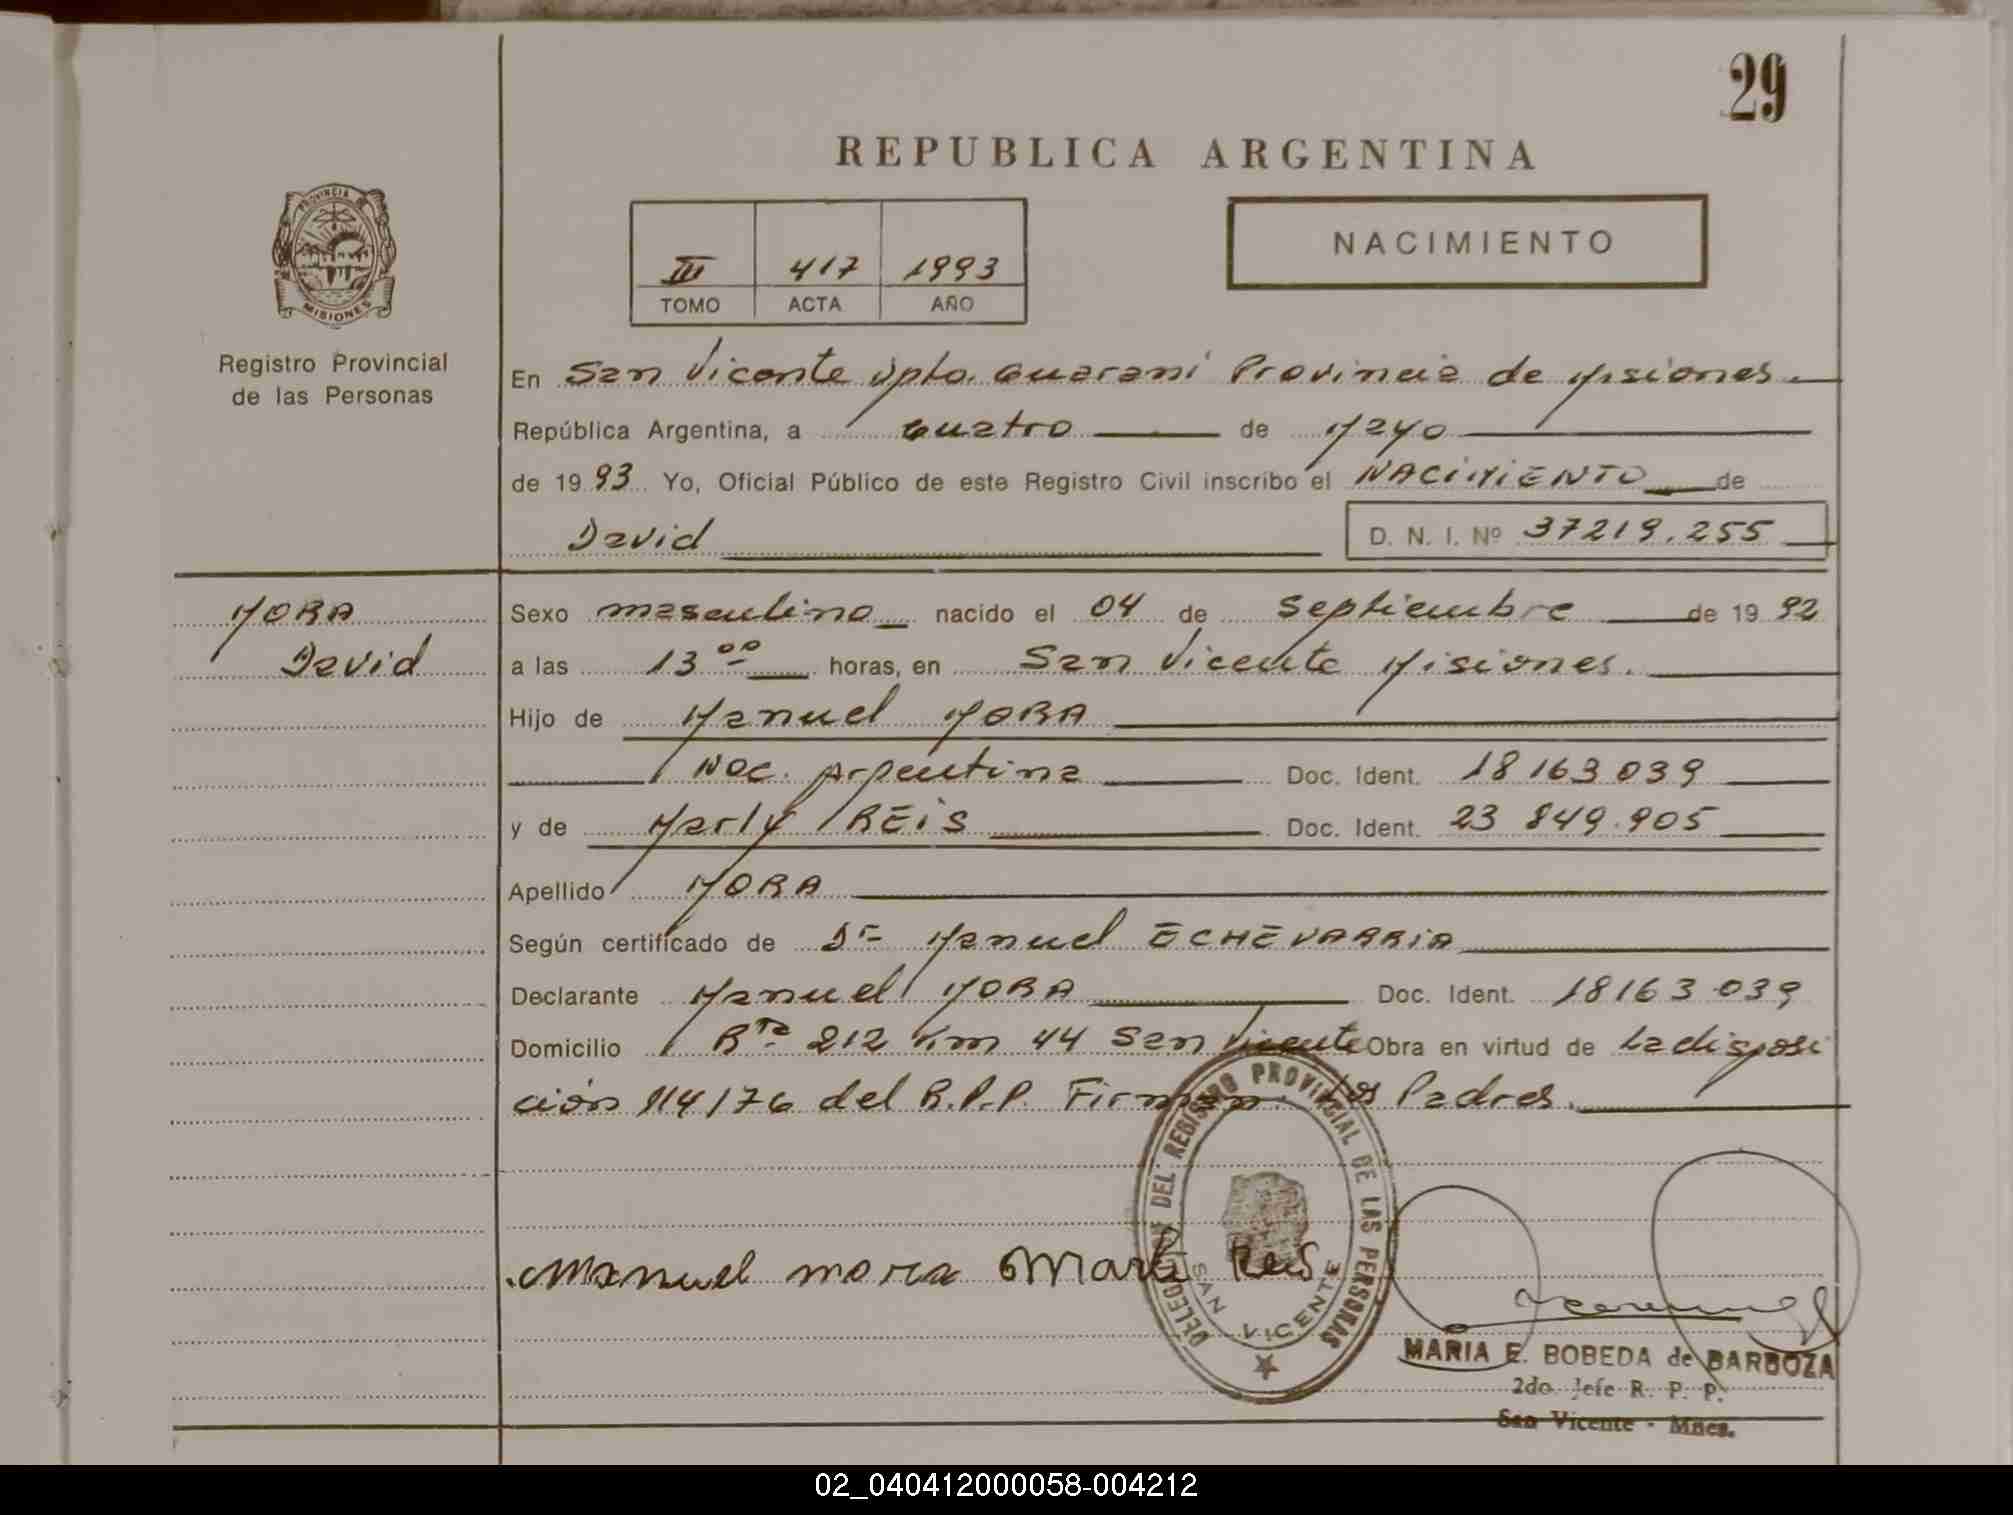 29
REPUBLICA ARGENTINA
PROVINCIA DE
MISIONES
Registro Provincial
de las Personas
III 417 1993
TOMO ACTA AÑO
NACIMIENTO
En San Vicente Dpto. Guaraní Provincia de Misiones.
República Argentina, a cuatro de Mayo
de 1993 Yo, Oficial Público de este Registro Civil inscribo el NACIMIENTO de
David D. N. I. Nº 37219.255
MORA
David
Sexo masculino nacido el 04 de Septiembre de 1992
a las 13 00 horas, en San Vicente Misiones.
Hijo de Manuel MORA
Nac. Argentina Doc. Ident. 18163039
y de Marly REIS Doc. Ident. 23 849.905
Apellido MORA
Según certificado de Dr Manuel ECHEVARRIA
Declarante Manuel MORA Doc. Ident. 18163 039
Domicilio Rta 212 Km 44 San Vicente Obra en virtud de la disposi
ción 114/76 del R.P.P. Firman: los Padres.
Manuel mora Marli Reis
DELEGACION DEL REGISTRO PROVINCIAL DE LAS PERSONAS
SAN VICENTE
MARIA E. BOBEDA de BARBOZA
2do. Jefe R. P. P.
San Vicente - Mnes.
02_040412000058-004212